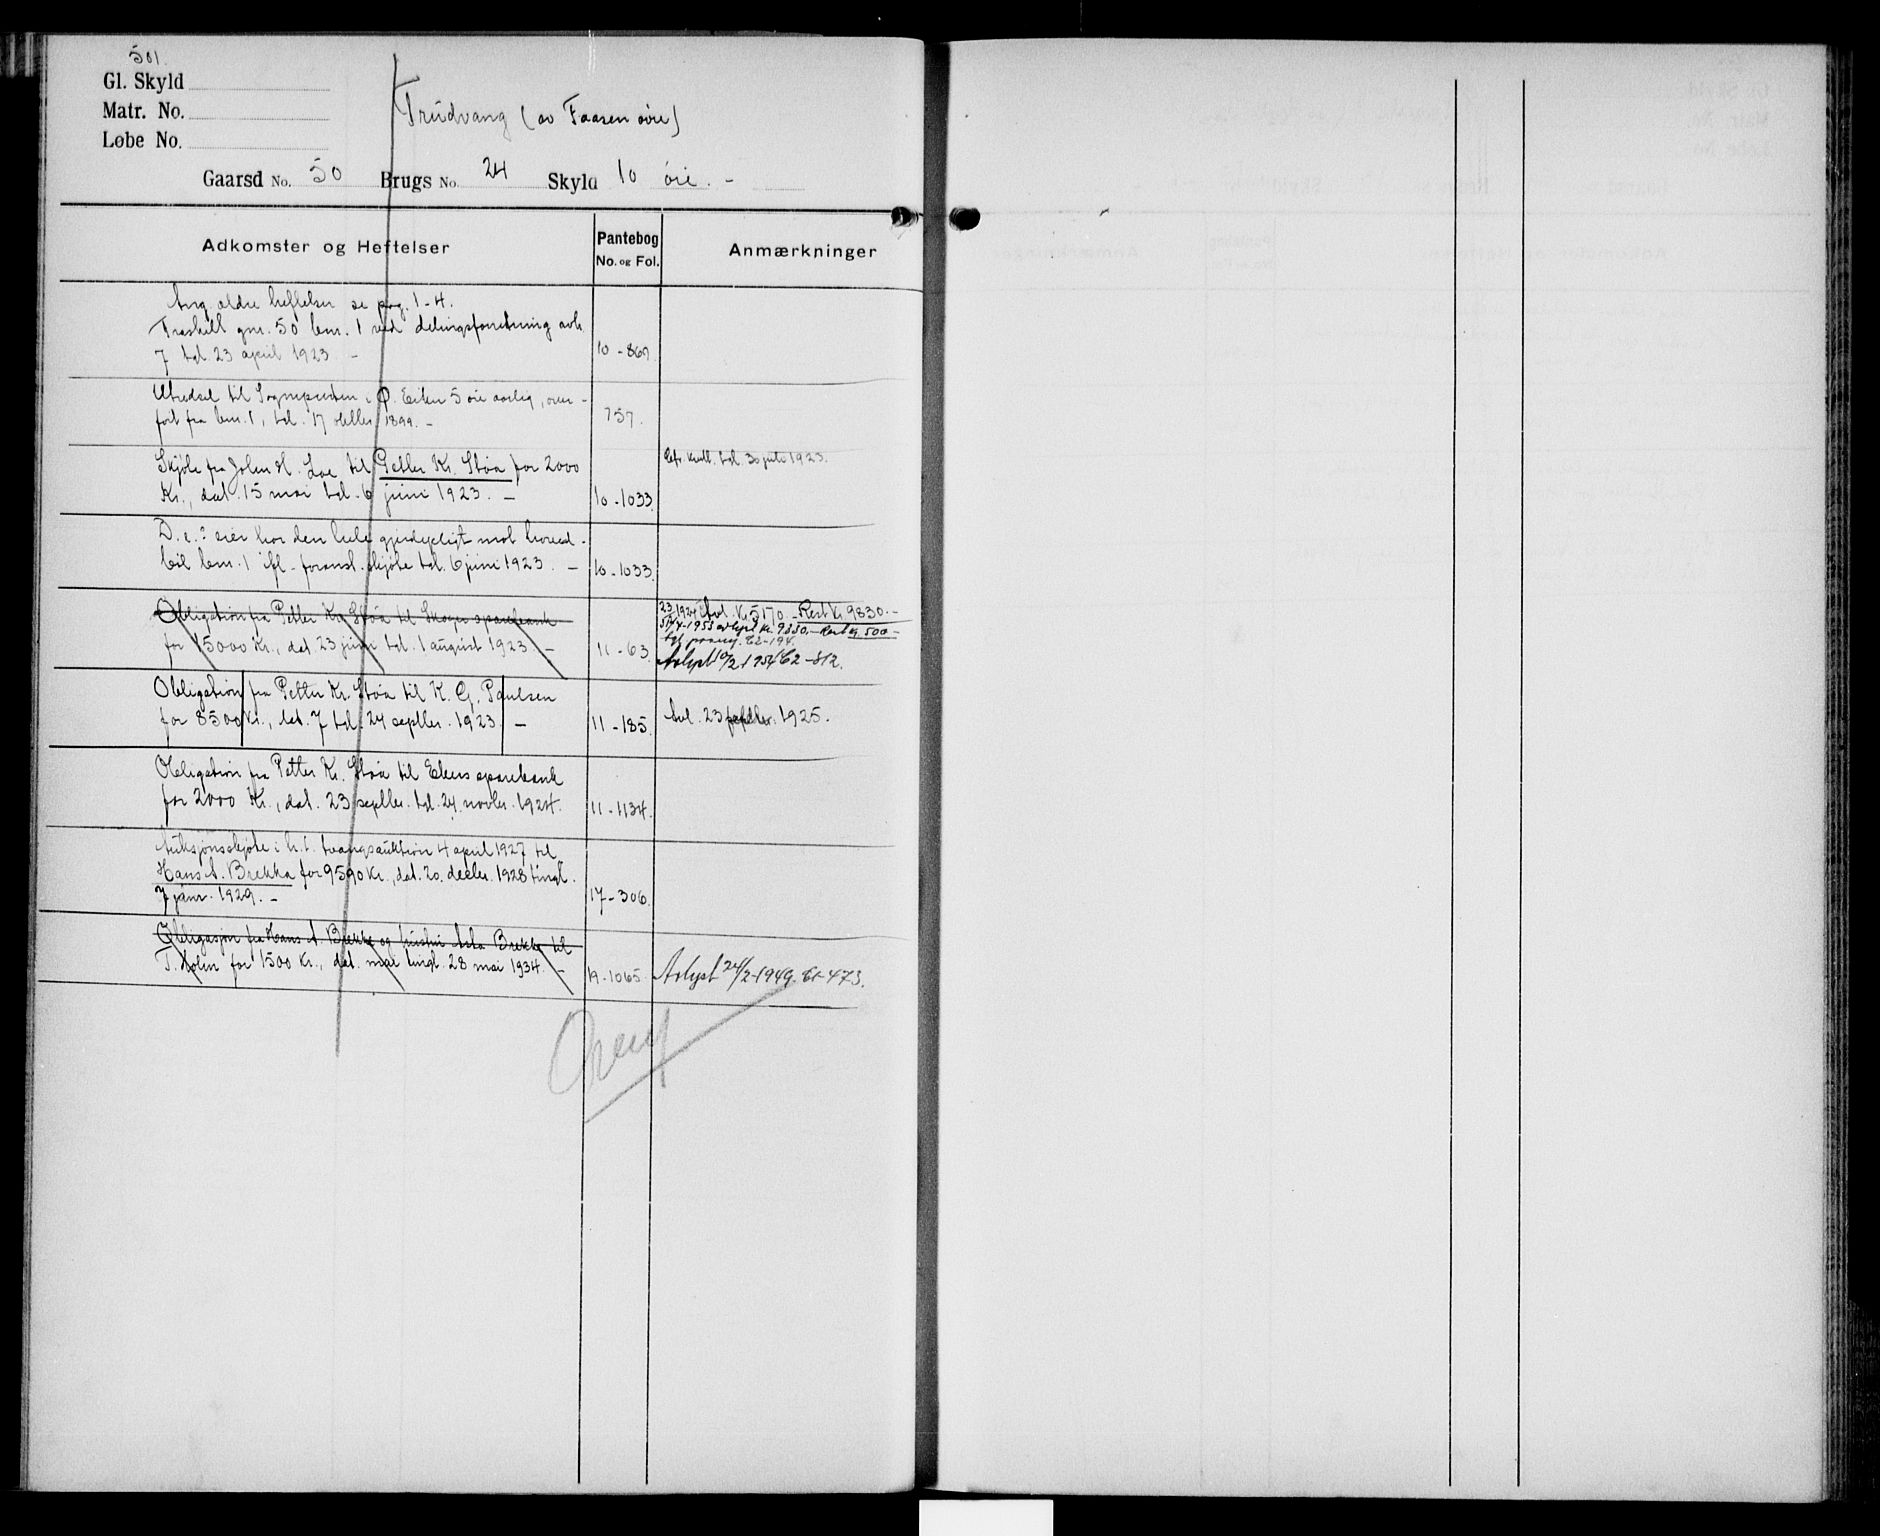 501.
Gl. Skyld
Matr. No.
Løbe No.
Trudvang (av Faasen øvre)
Gaards No. 50 Brugs No. 24 Skyld 10 øre. -
Adkomster og Heftelser
Pantebog
No. og Fol.
Anmærkninger
Ang. ældre heftelser se pag. 1-4.
Fraskilt gnr. 50 bnr. 1 ved delingsforretning avh.
7 tgl. 23 april 1923 - 10 - 867.
til Sognepresten i Ø. Eiker 5 øre aarlig, over-
ført fra bnr. 1, tgl. 17 oktbr. 1899. - 757.
Skjøte fra John H. Loe til Petter Kr. Støa for 2000
Kr., dat. 15 mai tgl. 6 juni 1923. - 10 - 1033.
tgl. 30 juli 1923.
D. e.: eier har den hele gjerdepligt mot hoved-
bøl bnr. 1 ifl. foranst. skjøte tgl. 6 juni 1923. - 10 - 1033.
Obligation fra Petter Kr. Støa til Skoger sparebank
for 15000 Kr., dat. 23 juni tgl. 1 august 1923 - 11 - 63.
1924 Avl. Kr. 5170 - Rest Kr. 9830. -
1953 avlyst kr. 9330. - Rest kr. 500 -
C2-194.
Avlyst 10/2 1954 C2 - 812.
Obligation fra Petter Kr. Støa til K. G. Paulsen
for 8500 Kr., dat. 7 tgl. 24 septbr. 1923 - 11 - 185.
Avl. 23 septbr. 1925.
Obligation fra Petter Kr. Støa til Ekers sparebank
for 2000 Kr., dat. 23 septbr. tgl. 24 novbr. 1924. 11 - 1134.
Auksjonsskjøte i h.t. tvangsauktion 4 april 1927 til
Hans A. Brekka for 9590 Kr., dat. 20. decbr. 1928 tingl.
7 janr. 1929. - 17 - 306.
Obligasjon fra Hans A. Brekke og hustru Asta Brekke til
T. Holm for 1500 Kr., dat. mai tingl. 28 mai 1934. - 19 - 1065
Avlyst 24/2-1949. C1-473.